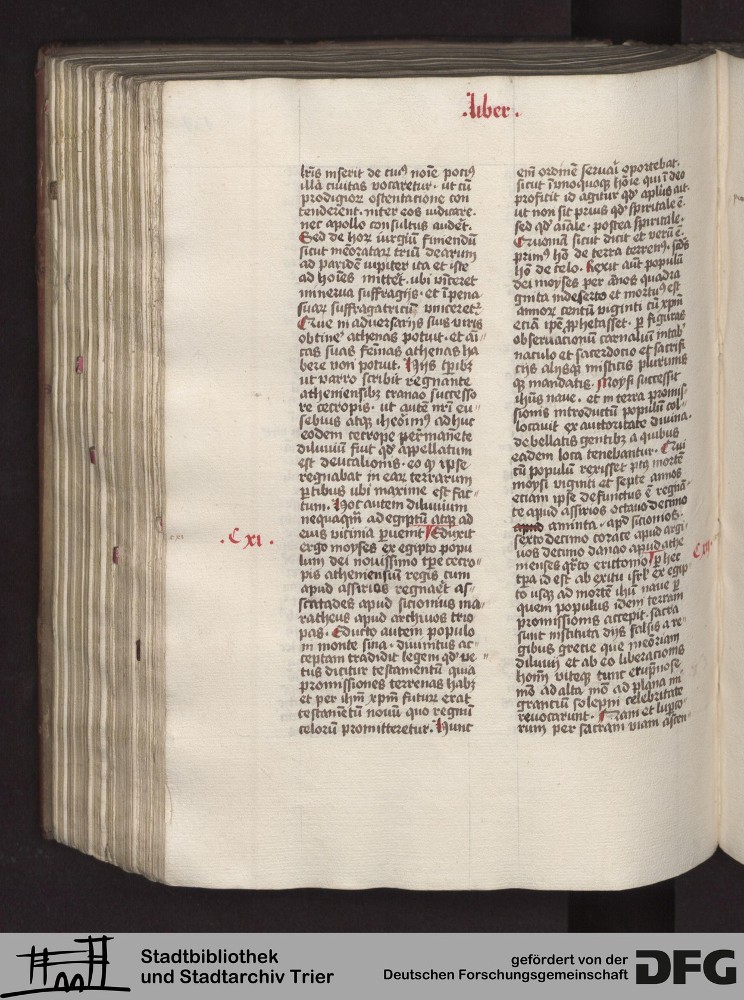 .liber.
lr̄is inserit de cuiꝰ noīe pociꝰ
illa ciuitas vocaretur · ut cū
prodigioꝝ ostentatione con
tenderent · inter eos iudicare ·
nec apollo consultus audēt ·
Sed de hoꝝ iurgiū finiendū
sicut memorataꝝ triū dearum
ad paridē iupiter ita et iste
ad hoīes mittēt · ubi vīceret
minerua suffragijs · et ī pena
suaꝝ suffragatricū vinceretꝛ
Que in aduersarijs suis viris
obtinē athenas potuit · et ai
cas suas feīnas athenas ha
bere non potuit · Hijs tp̄ibꝫ
ut varro scribit regnante
atheniensibꝫ cranao successo
re cecropis · ut autē nr̄i eu
sebius atqꝫ iheōimꝰ adhuc
eodem cecrope permanēte
diluuiū fuit qd̓ appellatum
est deucalionis · eo ꝙ ipse
regnabat in eaꝝ terrarum
ꝑtibus ubi maxime est fac
tum · Hoc autem diluuium
nequaqm̄ ad egiptū atqꝫ ad
eius vicinia ꝑuenit Eduxit
ergo moyses ex egipto popu
lum dei nouissimo tp̄e cecro
pis atheniensiū regis cum
apud assirios regnaēt as
scatades apud sicionius ma
ratheus apud archiuos trio
pas · Educto autem populo
in monte sina · diuinitus ac
ceptam tradidit legem qd̓ ve
tus dicitur testamentū quia
promissiones terrenas habꝫ
et per ihm̄ xp̄m futuꝝ erat
testamētū nouū quo regnū
celorū promitteretur · Hunc
.Cxi.
em̄ ordinē seruaī oportebat ·
sicut ī vnoquoqꝫ hoīe qui ī deo
proficit id agitur qd̓ aplūs ait
ut non sit prius qd̓ spirituale ē
sed qd̓ aīale · postea spirituale ·
Quoniā sicut dicit et verū ē
primꝰ hō de terra terrenꝰ · scd̓s
hō de celo · Rexit aūt populū
dei moyses per ānos quadra
ginta in deserto et mortuꝰ est
annoꝝ centū viginti cū xp̄m
etiā ip̄e ꝓphetasset · ꝑ figuras
obseruationū carnaliū in tab̓
naculo et sacerdocio et sacrifi
cijs alijsqꝫ misticis plurimis
qꝫ mandatis · Moysi successit
ihūs naue · et in terra promis
sionis introductū populū col
locauit ex auctoritate diuina ·
debellatis gentibꝫ a quibus
eadem loca tenebantur · Qui
cū populū rexisset post mortē
moysi viginti et septē annos
etiam ipse defunctus ē regnā
te apud assirios octauodecimo
apud aminta · apd̓ sicionios ·
sextodecimo corace apud argi
uos decimo danao apud athe
nienses qr̄to erittonio ꝑ hec
tp̄a id est ab exitu isrl̓ ex egip
to usqꝫ ad mortē ihū naue ꝑ
quem populus idem terram
promissionis accepit · sacra
sunt instituta dijs falsis a re
gibus grecie que mēoriam
diluuij et ab eo liberacionis
hoīm viteqꝫ tunc erūpnose
mō ad alta mō ad plana mi
grantiū solepni celebritate
reuocarunt · Nam et lup̄co
rum per sacram viam ascen
Cxij.
Stadtbibliothek
und Stadtarchiv Trier
gefördert von der
Deutschen Forschungsgemeinschaft
DFG